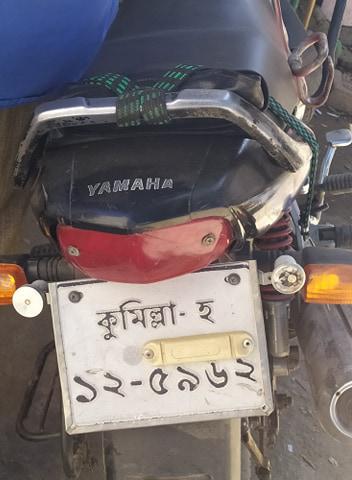 YAMAHA
কুমিল্লা- হ
১২-৫৯৬২